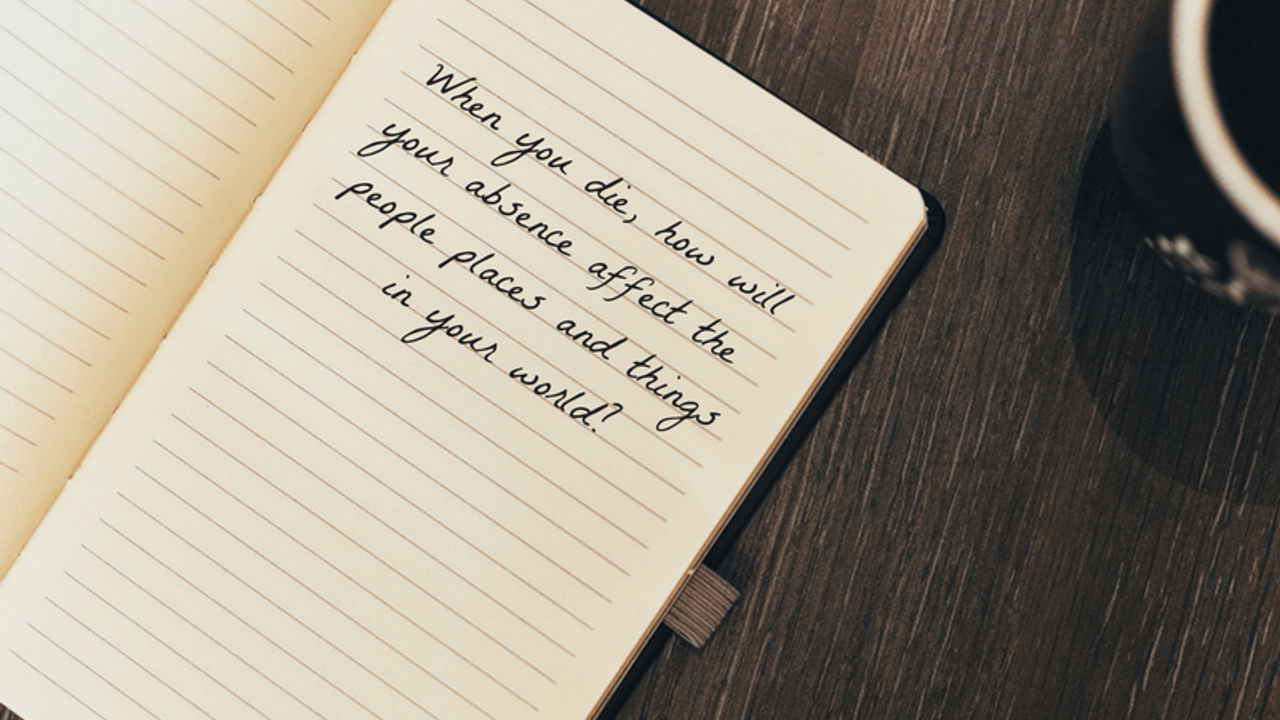 When you die, how will
your absence affect the
people places and things
in your world?